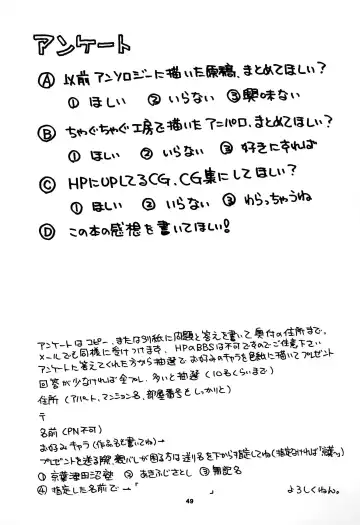 アンケート
Ⓐ 以前アンソロジーに描いた原稿、まとめてほしい？
① ほしい ② いらない ③ 興味ない
Ⓑ ちゃぐちゃぐ工房で描いたアニパロ、まとめてほしい？
① ほしい ② いらない ③ 好きにすれば
Ⓒ HPにUPしてるCG、CG集にしてほしい？
① ほしい ② いらない ③ わらっちゃうね
Ⓓ この本の感想を書いてほしい!
アンケートはコピー、または別紙に問題と答えを書いて奥付の住所まで。
メールでも同様に受けつけます。HPのBBSは不可ですのでご注意下い
アンケートに答えてくれた方から抽選でお好みのキャラを色紙に描いてプレゼント
回答が少なければ全プレ、多いと抽選（10名くらいまで）
住所（アパート、マンション名、部屋番号をしっかりと）
〒
名前（PN不可）
お好みキャラ（作品名も書いてね）→
プレゼントを送る際、親バレが困る方は送り名を下から指定してね（指定なければ「③」）
① 京葉津田沼塾 ② あきふじさとし ③ 無記名
④ 指定した名前で→「 」 よろしくねん。
49